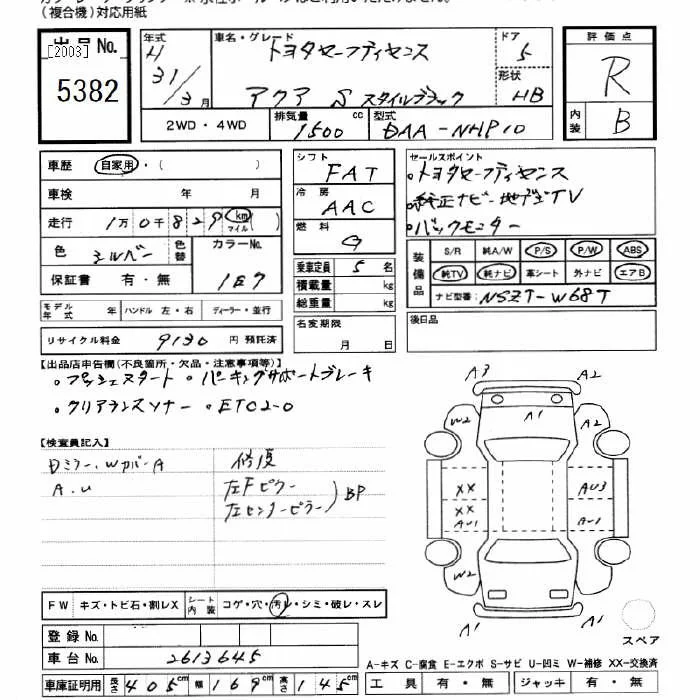 (複合機)対応用紙
出品No.
[2003]
5382
年式
H
31/3月
車名・グレード
トヨタセーフティセンス
アクア S スタイルブラック
ドア
5
形状
HB
評価点
R
内装
B
2WD・4WD
排気量
1500 cc
型式
DAA-NHP10
車歴 自家用・( )
車検 年 月
走行 1万0千829 km マイル ( )
色 シルバー 色替 カラーNo.
1E7
保証書 有・無
モデル年式 年 ハンドル 左・右 ディーラー・並行
リサイクル料金 9130 円 預託済
シフト
FAT
冷房
AAC
燃料
G
乗車定員 5 名
積載量 kg
総重量 kg
名変期限
月 日
セールスポイント
・トヨタセーフティセンス
・純正ナビ・地デジTV
・バックモニター
装備品
S/R 純A/W P/S P/W ABS
純TV 純ナビ 革シート 外ナビ エアB
ナビ型番: NSZT-W68T
後日品
【出品店申告欄(不良箇所・欠品・注意事項等)】
・プッシュスタート ・パーキングサポートブレーキ
・クリアランスソナー ・ETC2-0
【検査員記入】
Dミラー、WカバーA
A.U
修復
左Fピラー
左センターピラー
BP
A3 A2
W2 A1 A2
XX AU3
XX
AU1 AU1
W2
A1 A1
スペア
FW キズ・トビ石・割レX シート内装 コゲ・穴・汚レ・シミ・破レ・スレ
登録No.
車台No. 2613645
車庫証明用 長さ 405cm 幅 169cm 高さ 145cm
A-キズ C-腐食 E-エクボ S-サビ U-凹ミ W-補修 XX-交換済
工具 有・無 ジャッキ 有・無